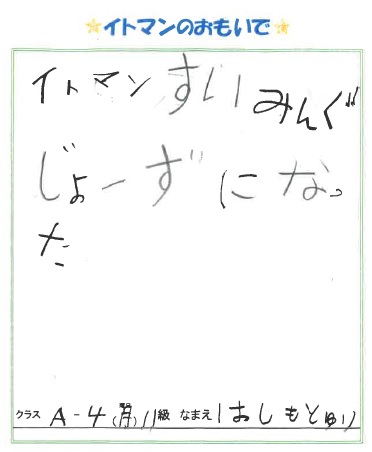 イトマンのおもいで
イトマンすいみんぐ
じょーずになっ
た
クラス A-4(月)11級 なまえ はしもとゆり